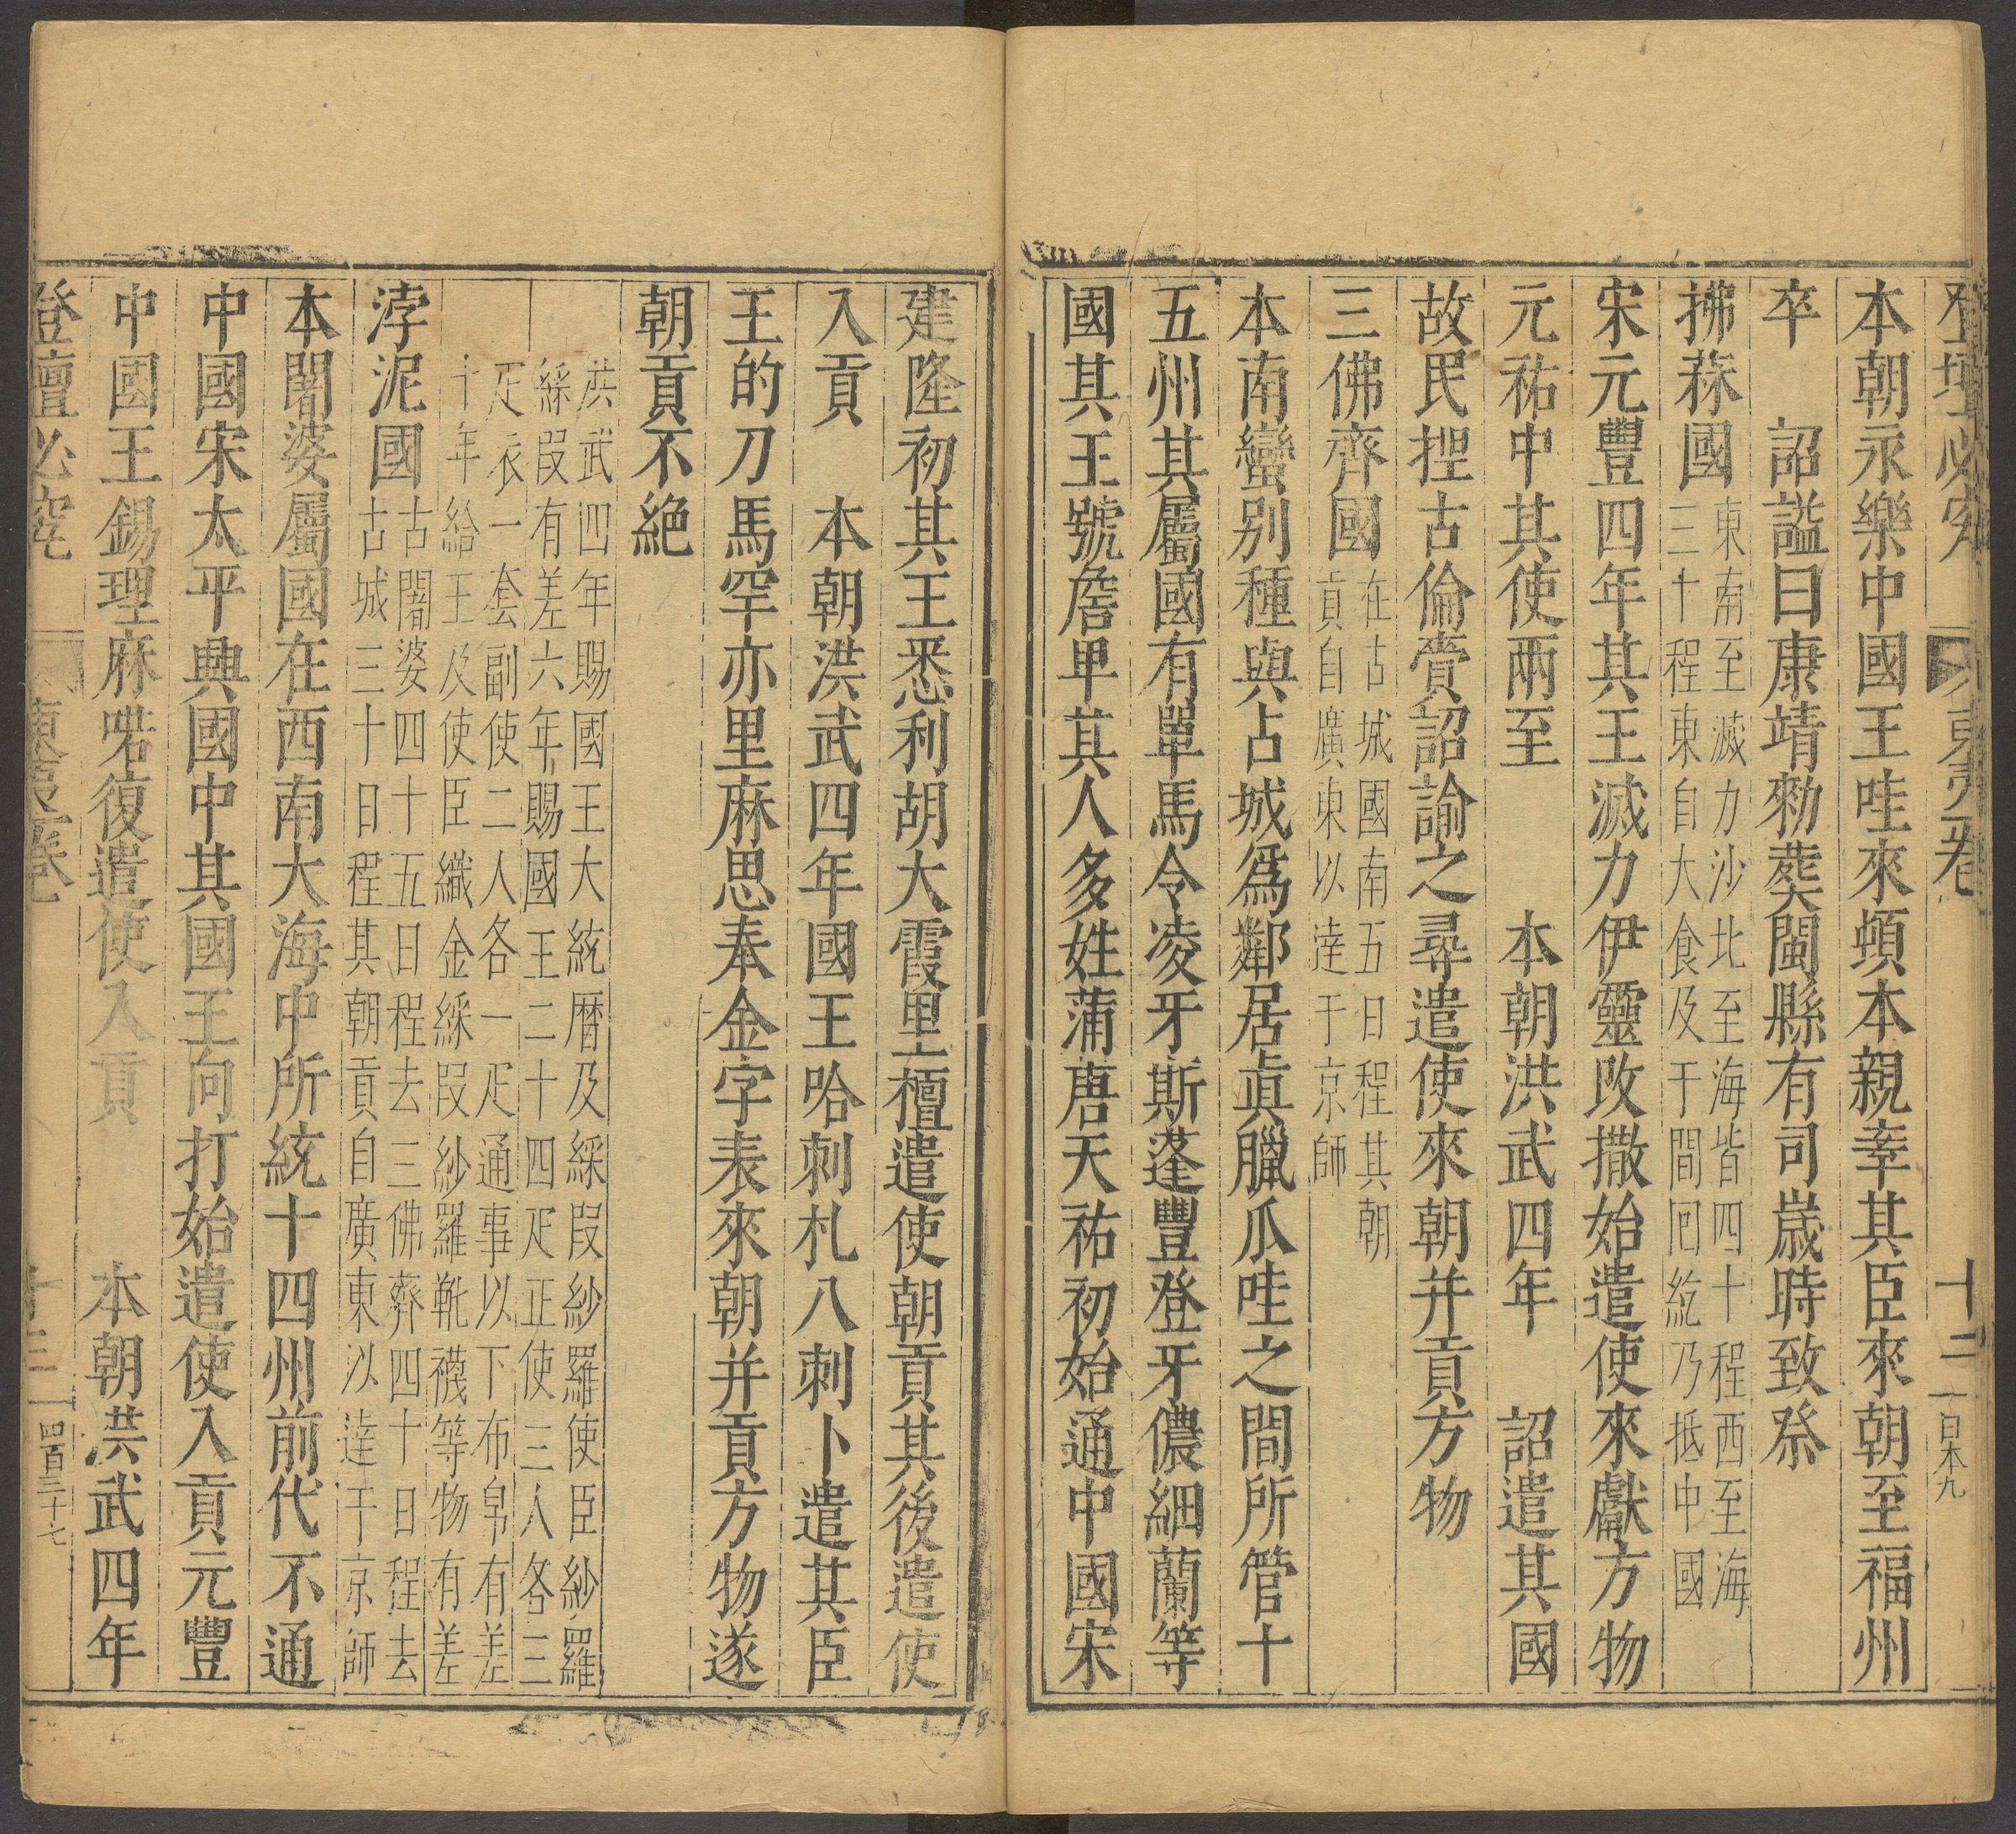 登壇必究 東夷卷 十二 日本九
本朝永樂中國王哇來頓本親率其臣來朝至福州
卒 詔謚曰康靖勑葬閩縣有司歲時致祭
拂菻國
東南至滅力沙北至海皆四十程西至海
三十程東自大食及于闐囘紇乃抵中國
宋元豐四年其王滅力伊靈攺撒始遣使來獻方物
元祐中其使兩至 本朝洪武四年 詔遣其國
故民捏古倫賫詔諭之尋遣使來朝并貢方物
三佛齊國
在古城國南五日程其朝
貢自廣東以逹于京師
本南蠻別種與占城爲鄰居眞臘爪哇之間所管十
五州其屬國有單馬令凌牙斯蓬豐登牙儂細蘭等
國其王號詹卑其人多姓蒲唐天祐初始通中國宋
建隆初其王悉利胡大霞里檀遣使朝貢其後遣使
入貢 本朝洪武四年國王哈剌札八剌卜遣其臣
王的刀馬罕亦里麻思奉金字表來朝并貢方物遂
朝貢不絶
洪武四年賜國王大統曆及綵叚紗羅使臣紗羅
綵叚有差六年賜國王二十四疋正使三人各三
疋衣一套副使二人各一疋通事以下布帛有差
十年給王及使臣織金綵叚紗羅靴襪等物有差
浡泥國
古闍婆四十五日程去三佛齊四十日程去
古城三十日程其朝貢自廣東以逹于京師
本闍婆屬國在西南大海中所統十四州前代不通
中國宋太平興國中其國王向打始遣使入貢元豐
中國王錫理麻喏復遣使入貢 本朝洪武四年
登壇必究 東夷卷 十三 四百三十七